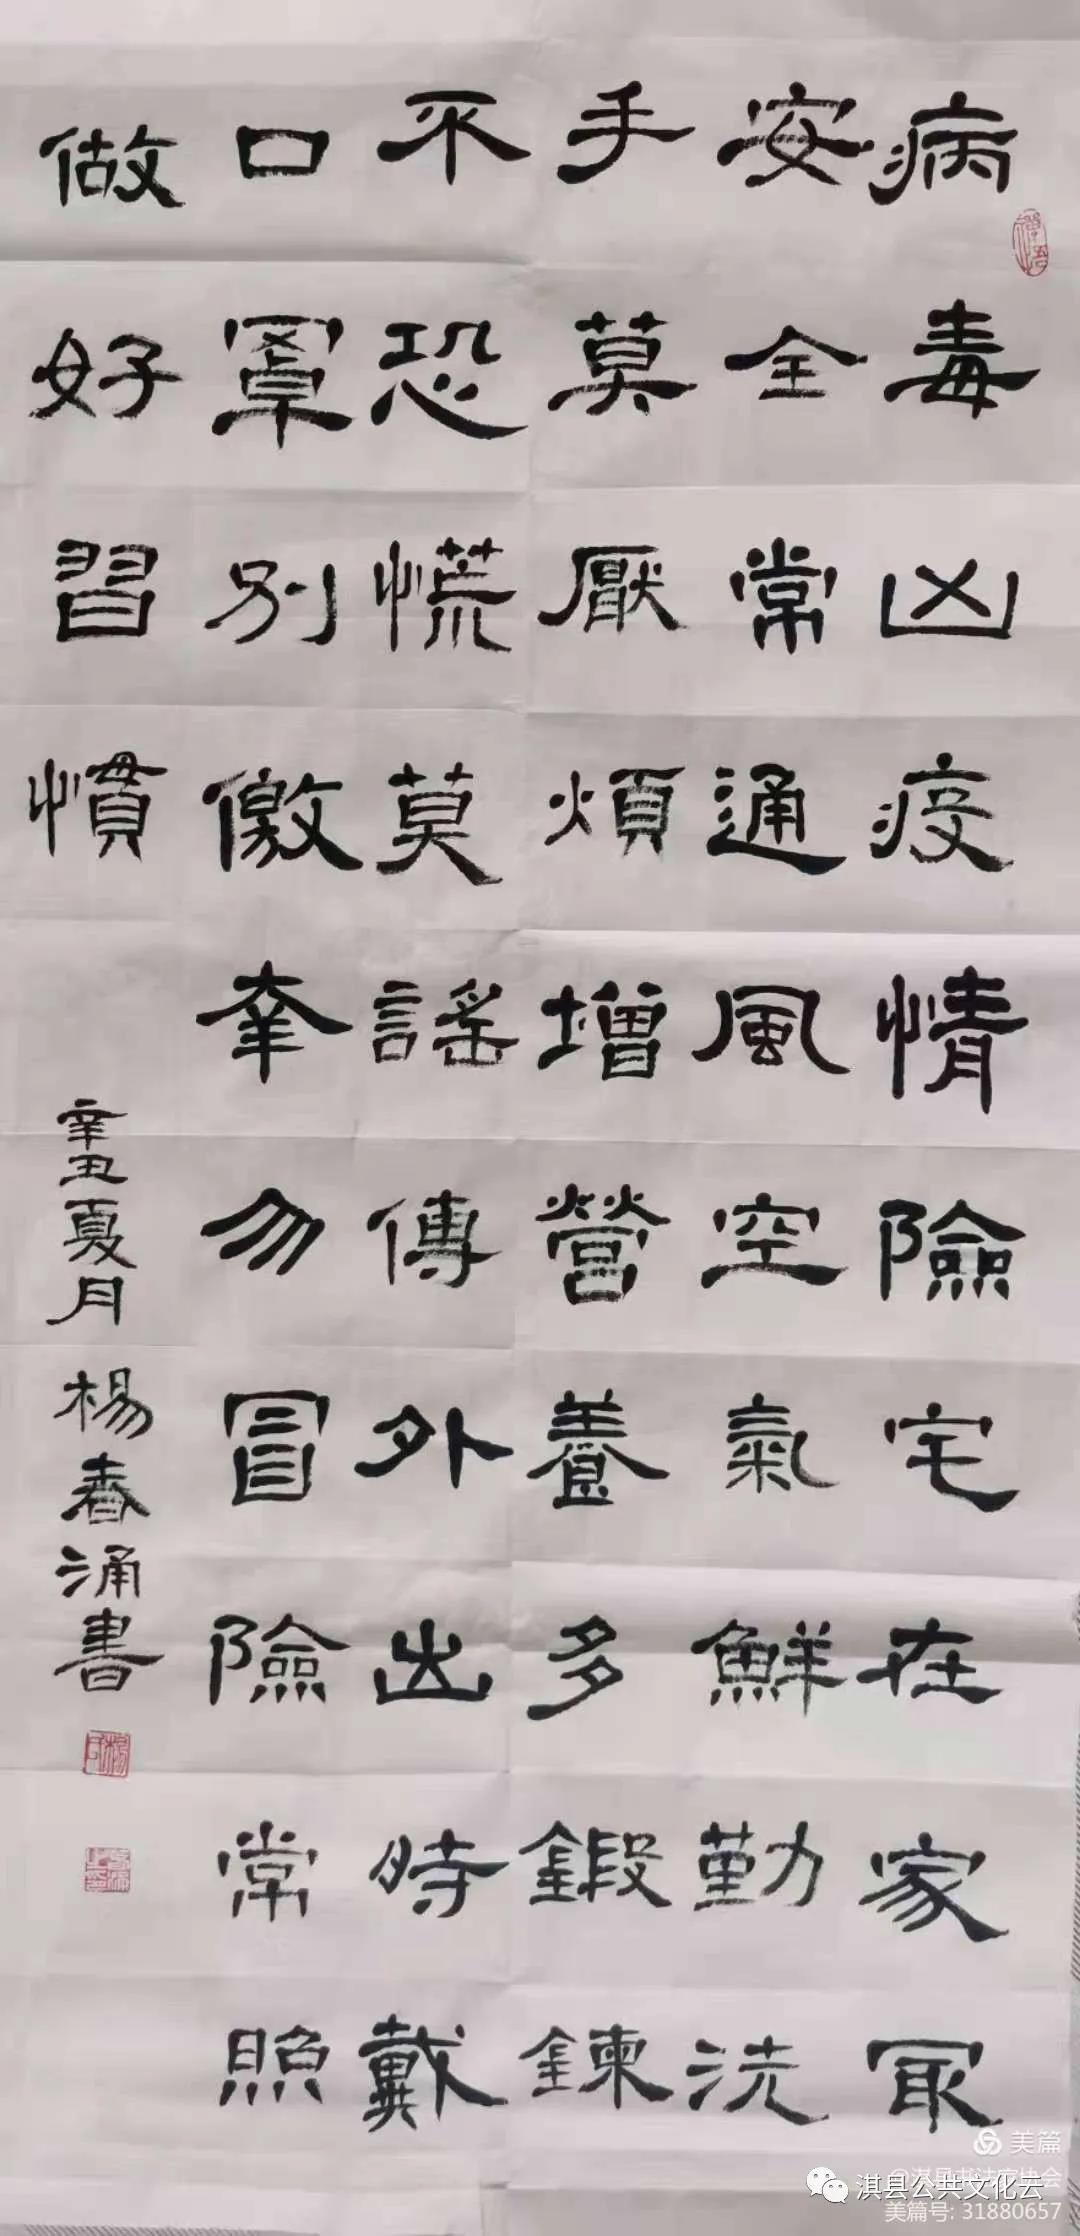 病毒凶疫情險宅在家冣
安全常通風空氣鮮勤洗
手莫厭煩增營養多鍛鍊
不恐慌莫謠傳外出時戴
口罩别儌幸勿冒險常照
做好習慣
辛丑夏月楊春涌書
美篇
@淇县书法家协会
淇县公共文化云
美篇号: 31880657